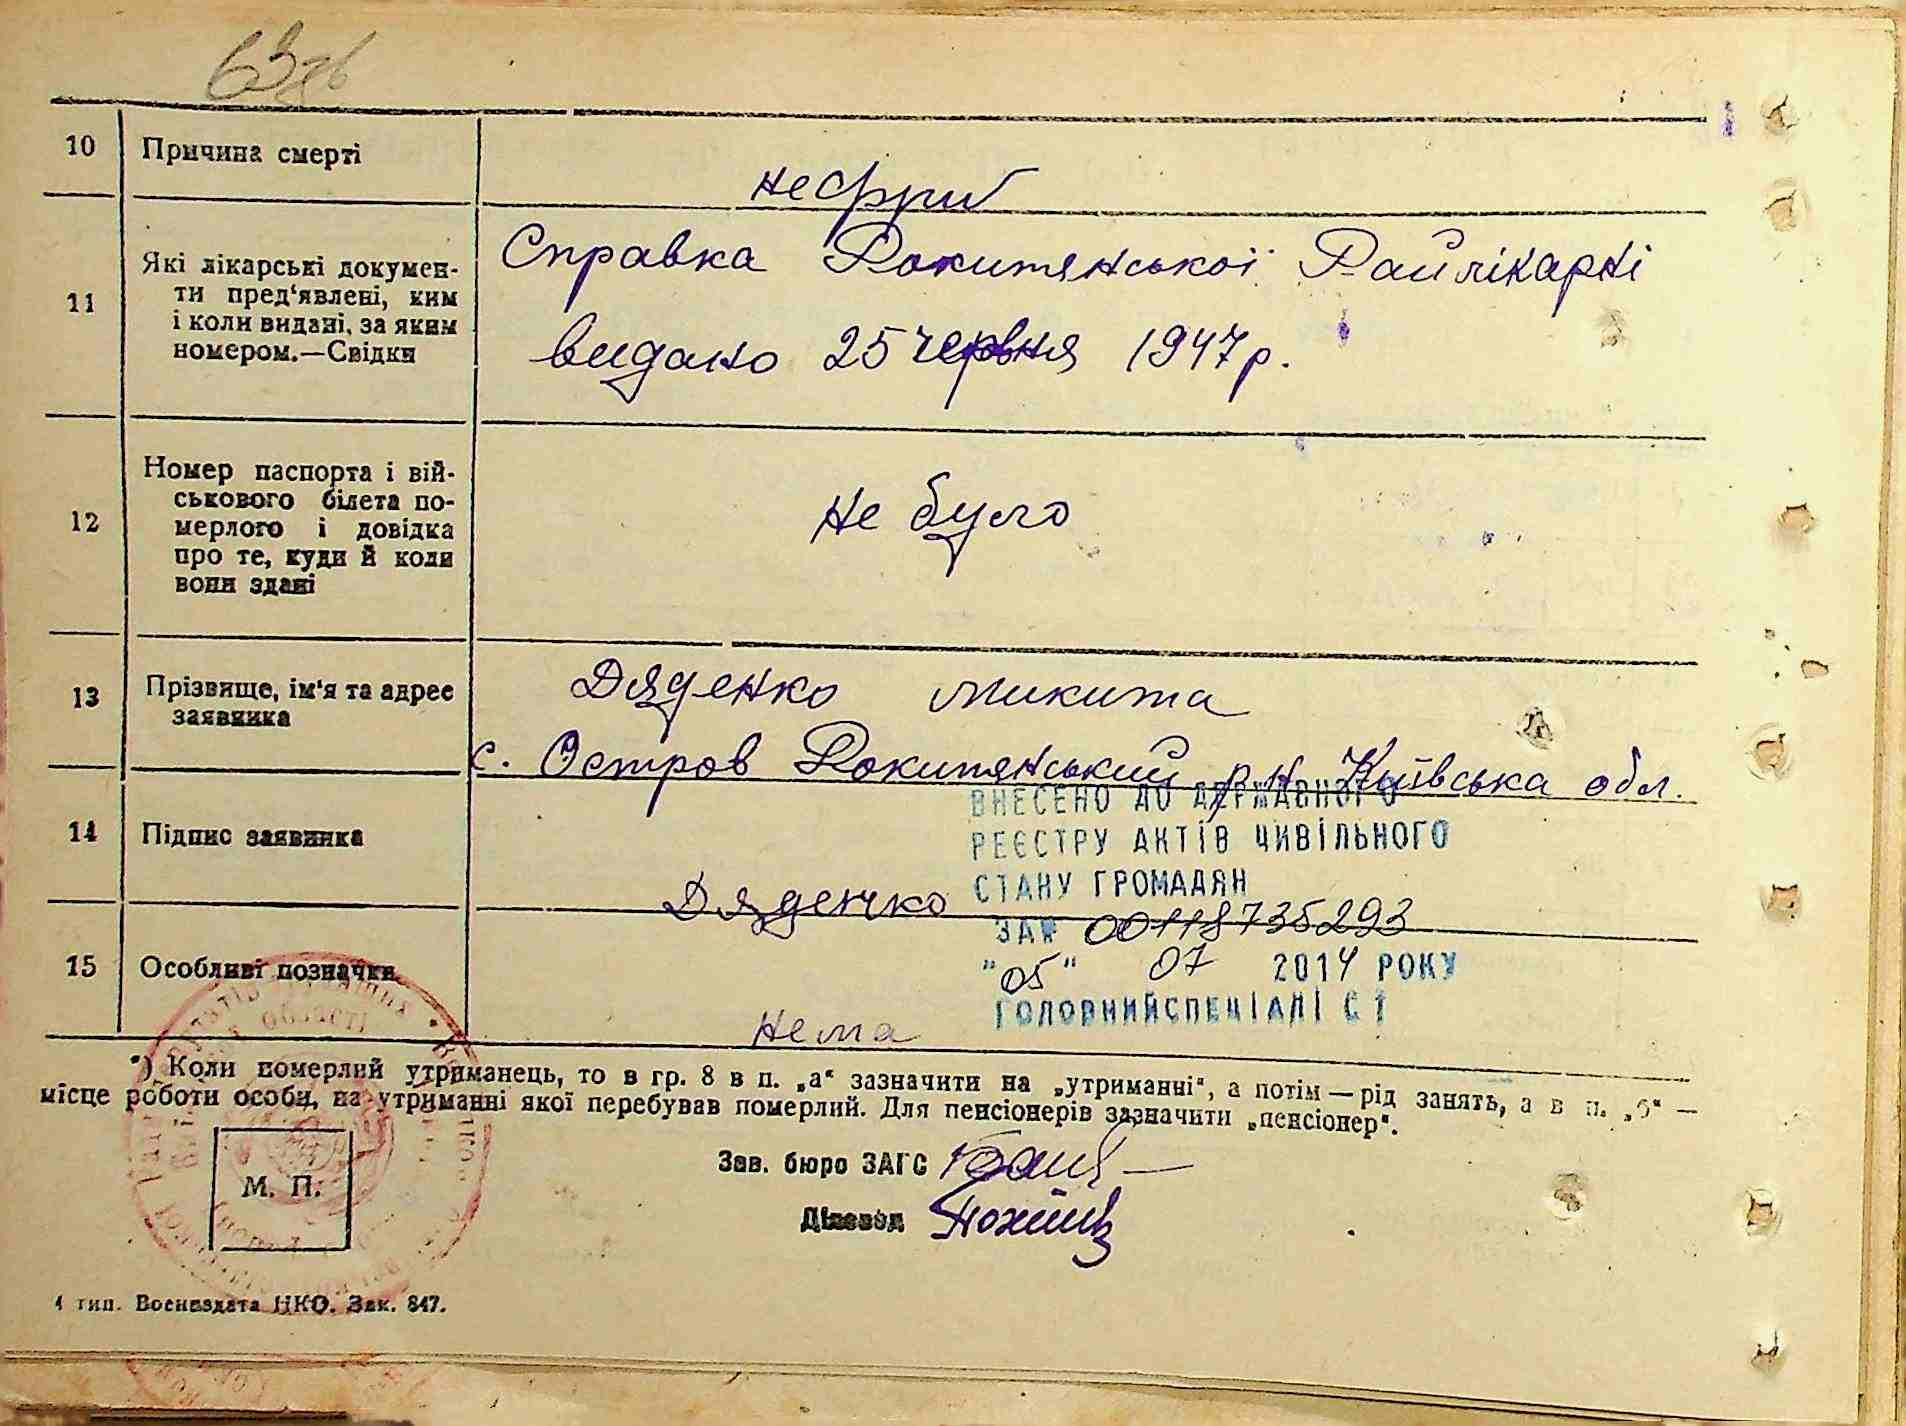 63зв
10 Причина смерті нефрит
11 Які лікарські докумен-
ти пред‘явлені, ким
і коли видані, за яким
номером.—Свідки
Справка Рокитянської Райлікарні
видано 25 червня 1947 р.
12 Номер паспорта і вій-
ськового білета по-
мерлого і довідка
про те, куди й коли
вони здані
Не було
13 Прізвище, ім‘я та адрес
заявника
Дяденко Микита
с. Остров Рокитянський р-н Київська обл.
14 Підпис заявника
Дяденко
ВНЕСЕНО ДО ДЕРЖАВНОГО
РЕЄСТРУ АКТІВ ЦИВІЛЬНОГО
СТАНУ ГРОМАДЯН
ЗА № 00118735293
"05" 07 2014 РОКУ
ГОЛОВНИЙ СПЕЦІАЛІСТ
15 Особливі позначки
Нема
*) Коли померлий утриманець, то в гр. 8 в п. „а“ зазначити на „утриманні“, а потім — рід занять, а в п. „б“ —
місце роботи особи, на утриманні якої перебував померлий. Для пенсіонерів зазначити „пенсіонер“.
Зав. бюро ЗАГС
М. П.
Діловод
1 тип. Воениздата НКО. Зак. 847.